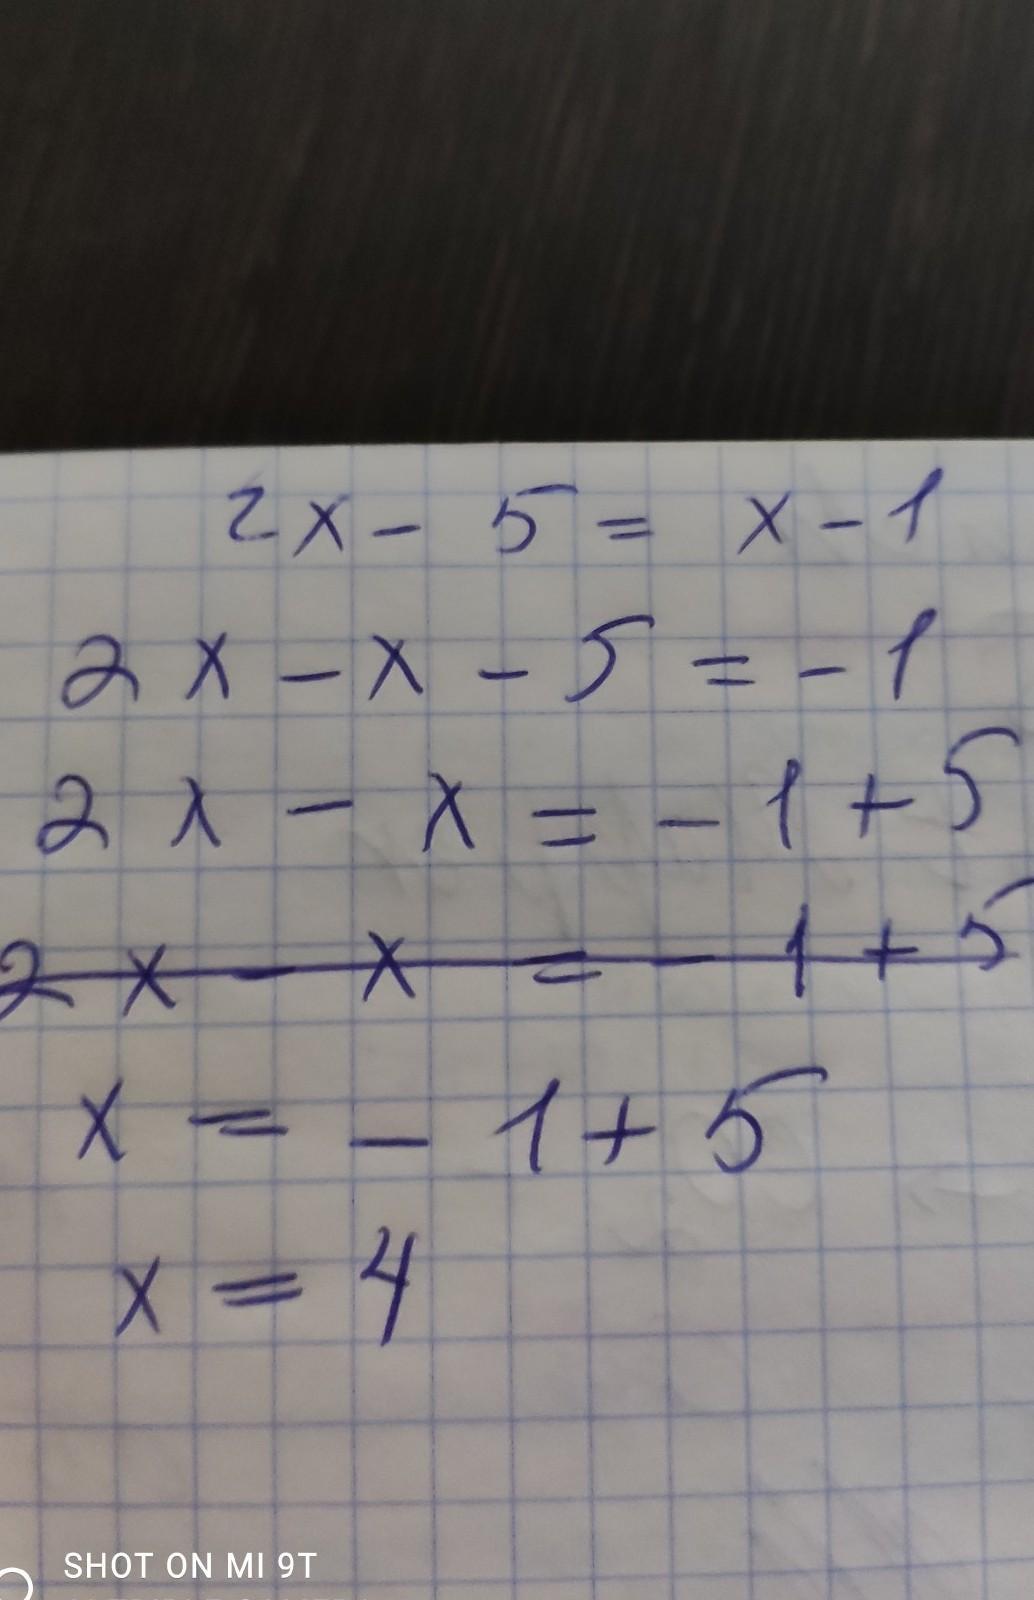 2x - 5 = x - 1
2x - x - 5 = - 1
2x - x = - 1 + 5
2x - x = - 1 + 5
x = - 1 + 5
x = 4
SHOT ON MI 9T